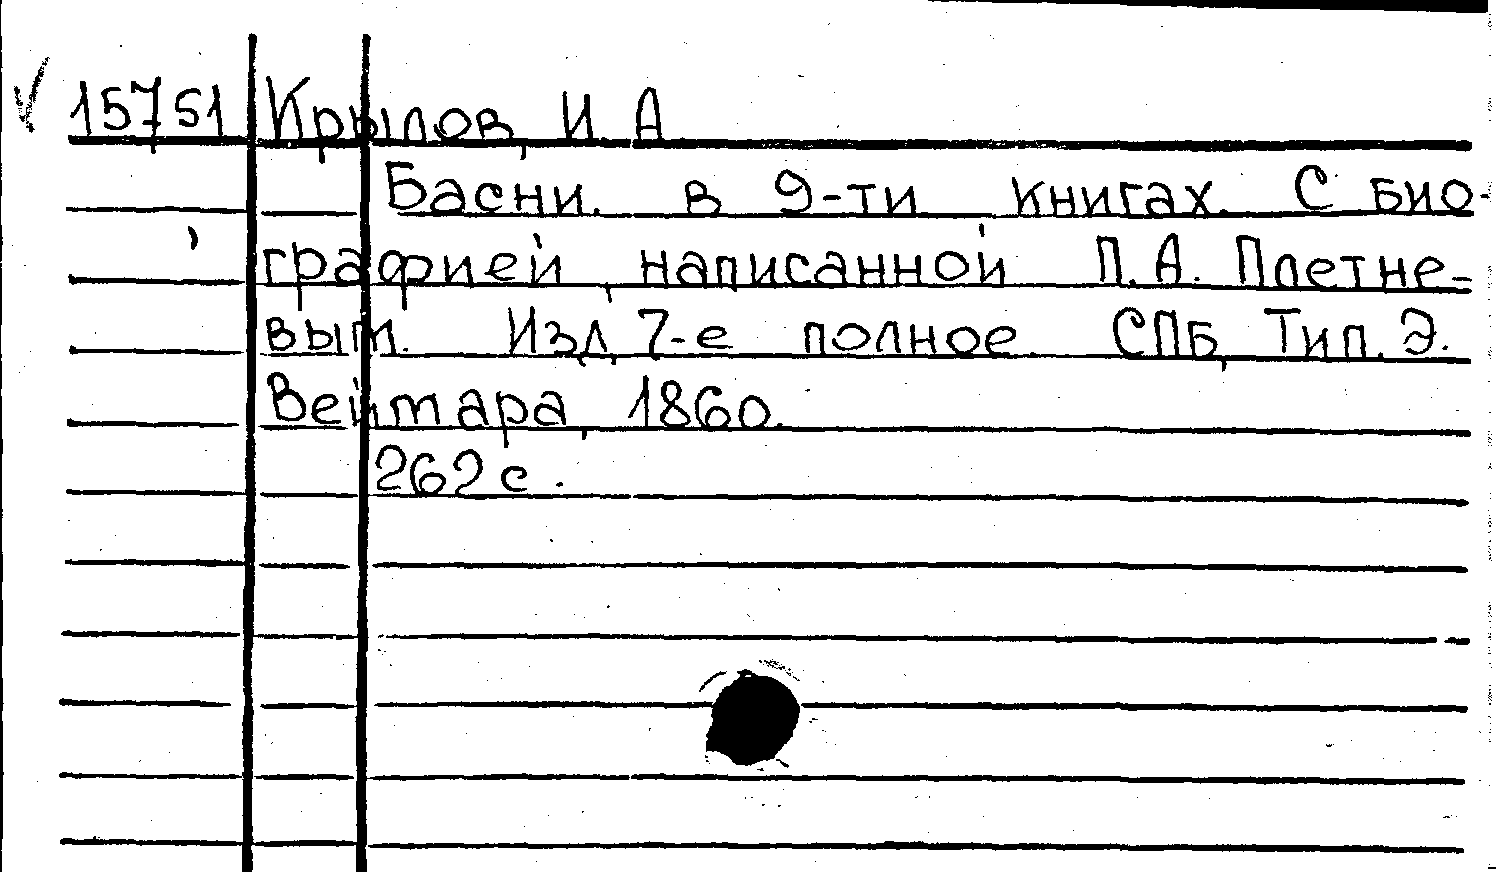 15751 Крылов, И. А
Басни. в 9-ти книгах. С био-
графией, написанной П.А. Плетне-
вым. Изд. 7-е полное. СПБ, Тип. Э.
Веймара, 1860.
262 с.